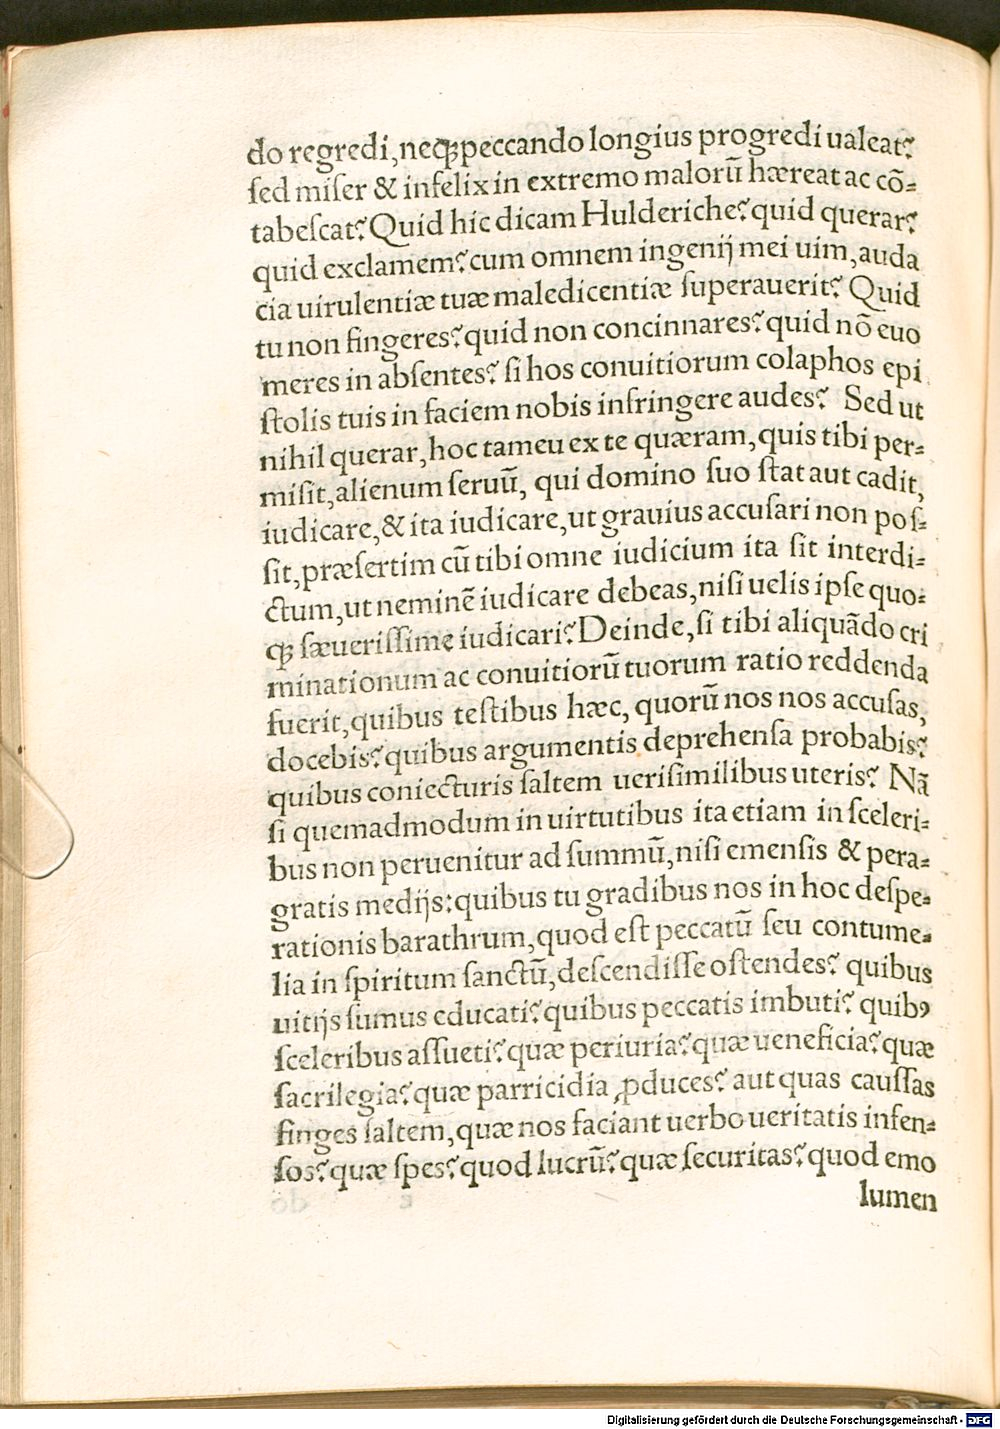 do regredi,neqꝫ peccando longius progredi ualeat?
sed miser & infelix in extremo malorū hæreat ac cō-
tabescat? Quid hic dicam Hulderiche? quid querar?
quid exclamem? cum omnem ingenij mei uim,auda
cia uirulentiæ tuæ maledicentiæ superauerit? Quid
tu non fingeres? quid non concinnares? quid nō euo
meres in absentes? si hos conuitiorum colaphos epi
stolis tuis in faciem nobis infringere audes? Sed ut
nihil querar,hoc tameu ex te quæram,quis tibi per-
misit,alienum seruū, qui domino suo stat aut cadit,
iudicare,& ita iudicare,ut grauius accusari non pos-
sit,præsertim cū tibi omne iudicium ita sit interdi-
ctum,ut neminē iudicare debeas,nisi uelis ipse quo-
qꝫ sæuerissime iudicari? Deinde,si tibi aliquādo cri
minationum ac conuitiorū tuorum ratio reddenda
fuerit,quibus testibus hæc, quorū nos nos accusas,
docebis? quibus argumentis deprehensa probabis?
quibus coniecturis saltem uerisimilibus uteris? Nā
si quemadmodum in uirtutibus ita etiam in sceleri-
bus non peruenitur ad summū,nisi emensis & pera-
gratis medijs: quibus tu gradibus nos in hoc despe-
rationis barathrum,quod est peccatū seu contume-
lia in spiritum sanctū,descendisse ostendes? quibus
uitijs sumus educati? quibus peccatis imbuti? quibꝰ
sceleribus assueti? quæ periuria? quæ ueneficia? quæ
sacrilegia? quæ parricidia ꝓduces? aut quas caussas
finges saltem,quæ nos faciant uerbo ueritatis infen-
sos? quæ spes? quod lucrū? quæ securitas? quod emo
lumen
Digitalisierung gefördert durch die Deutsche Forschungsgemeinschaft - DFG